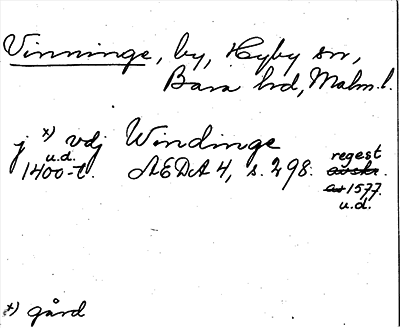 Vinninge, by, Hyby sn,
Bara hd, Malm.l.
j x) vdj Windinge
u.d. 1400-t. AEDA 4, s. 298. regest
avskr.
av 1577.
u.d.
x) gård